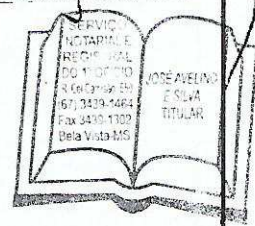 SERVIÇO
NOTARIAL E
REGISTRAL
DO 1º OFÍCIO
(67) 3439-1464
Fax 3439-1302
Bela Vista-MS
JOSÉ AVELINO
E SILVA
TITULAR